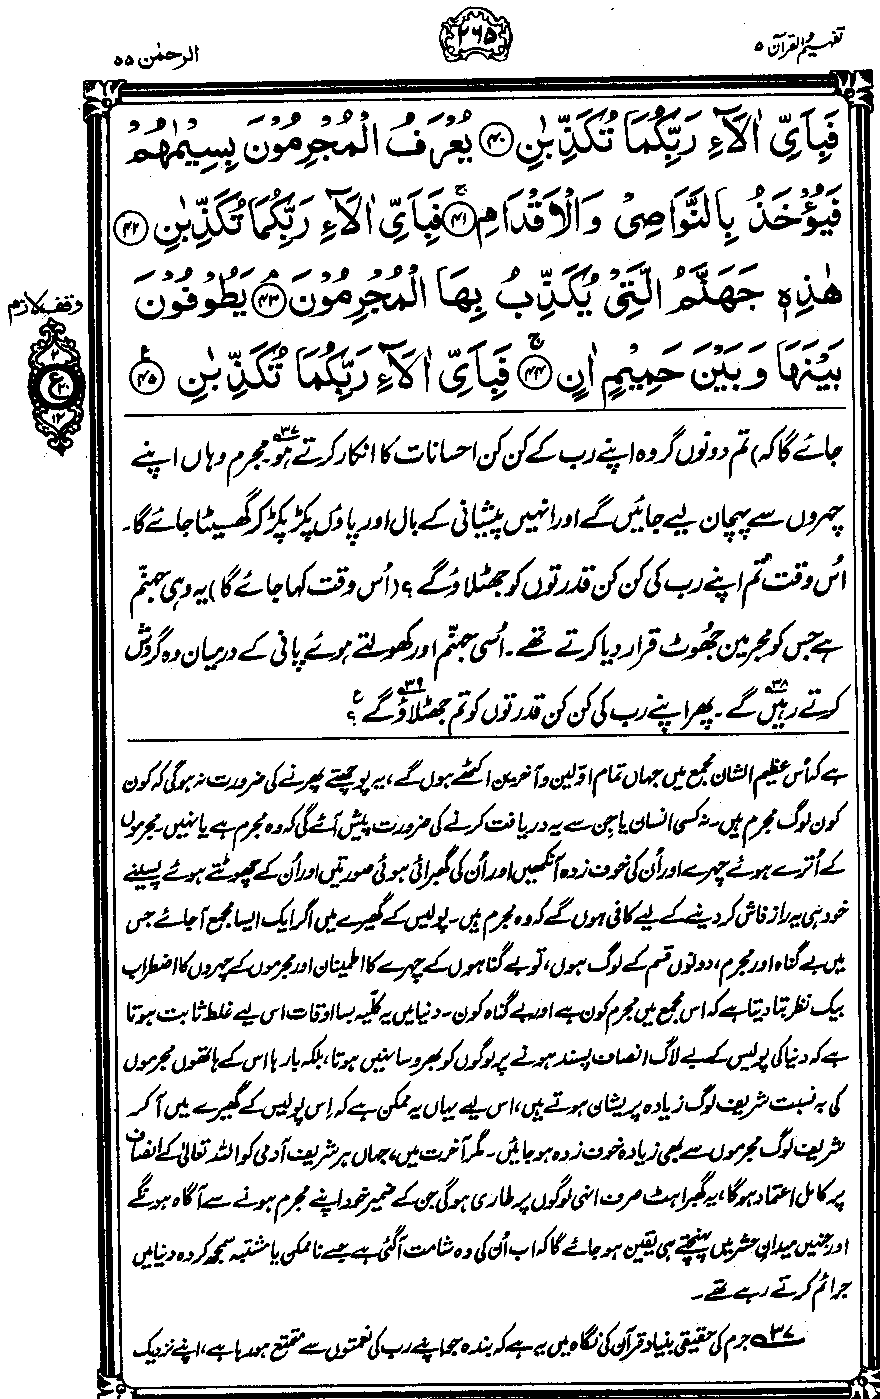 تفہیم القرآن ۵
۲۶۵
الرحمٰن ۵۵
فَبِاَيِّ اٰلَآءِ رَبِّكُمَا تُكَذِّبٰنِ ﴿۴۰﴾ يُعْرَفُ الْمُجْرِمُوْنَ بِسِيْمٰهُمْ
فَيُؤْخَذُ بِالنَّوَاصِيْ وَالْاَقْدَامِ ﴿۴۱﴾ۚ فَبِاَيِّ اٰلَآءِ رَبِّكُمَا تُكَذِّبٰنِ ﴿۴۲﴾
هٰذِهٖ جَهَنَّمُ الَّتِيْ يُكَذِّبُ بِهَا الْمُجْرِمُوْنَ ﴿۴۳﴾ۘ يَطُوْفُوْنَ
بَيْنَهَا وَبَيْنَ حَمِيْمٍ اٰنٍ ﴿۴۴﴾ۚ فَبِاَيِّ اٰلَآءِ رَبِّكُمَا تُكَذِّبٰنِ ﴿۴۵﴾ع
وقف لازم
۲
ع
۲۰
۱۲
جائے گا کہ) تم دونوں گروہ اپنے رب کے کن کن احسانات کا انکار کرتے ہو۳۷۔ مجرم وہاں اپنے
چہروں سے پہچان لیے جائیں گے اور انہیں پیشانی کے بال اور پاؤں پکڑ پکڑ کر گھسیٹا جائے گا۔
اُس وقت تم اپنے رب کی کن کن قدرتوں کو جھٹلاؤ گے؟ (اُس وقت کہا جائے گا) یہ وہی جہنّم
ہے جس کو مجرمین جھُوٹ قرار دیا کرتے تھے۔ اُسی جہنّم اور کھولتے ہوئے پانی کے درمیان وہ گردش
کرتے رہیں۳۸ گے۔ پھر اپنے رب کی کن کن قدرتوں کو تم جھٹلاؤ۳۹ گے؟ ع
ہے کہ اُس عظیم الشان مجمع میں جہاں تمام اوّلین و آخرین اکٹھے ہوں گے، یہ پوچھتے پھرنے کی ضرورت نہ ہوگی کہ کون
کون لوگ مجرم ہیں۔ نہ کسی انسان یا جِن سے یہ دریافت کرنے کی ضرورت پیش آئے گی کہ وہ مجرم ہے یا نہیں۔ مجرموں
کے اُترے ہوئے چہرے اور اُن کی خوف زدہ آنکھیں اور اُن کی گھبرائی ہوئی صورتیں اور اُن کے چھوٹتے ہوئے پسینے
خود ہی یہ راز فاش کر دینے کے لیے کافی ہوں گے کہ وہ مجرم ہیں۔ پولیس کے گھیرے میں اگر ایک ایسا مجمع آجائے جس
میں بے گناہ اور مجرم، دونوں قسم کے لوگ ہوں، تو بے گناہوں کے چہرے کا اطمینان اور مجرموں کے چہروں کا اضطراب
بیک نظر بتا دیتا ہے کہ اس مجمع میں مجرم کون ہے اور بے گناہ کون۔ دنیا میں یہ کلّیہ بسا اوقات اس لیے غلط ثابت ہوتا
ہے کہ دنیا کی پولیس کے بے لاگ انصاف پسند ہونے پر لوگوں کو بھروسا نہیں ہوتا، بلکہ بارہا اس کے ہاتھوں مجرموں
کی بہ نسبت شریف لوگ زیادہ پریشان ہوتے ہیں، اس لیے یہاں یہ ممکن ہے کہ اِس پولیس کے گھیرے میں آ کر
شریف لوگ مجرموں سے بھی زیادہ خوف زدہ ہو جائیں۔ مگر آخرت میں، جہاں ہر شریف آدمی کو اللہ تعالیٰ کے انصاف
پر کامل اعتماد ہوگا، یہ گھبراہٹ صرف انہی لوگوں پر طاری ہوگی جن کے ضمیر خود اپنے مجرم ہونے سے آگاہ ہونگے
اور جنہیں میدانِ حشر میں پہنچتے ہی یقین ہو جائے گا کہ اب اُن کی وہ شامت آگئی ہے جسے ناممکن یا مشتبہ سمجھ کر وہ دنیا میں
جرائم کرتے رہے تھے۔
۳۷ جرم کی حقیقی بنیاد قرآن کی نگاہ میں یہ ہے کہ بندہ جو اپنے رب کی نعمتوں سے متمتع ہو رہا ہے، اپنے نزدیک